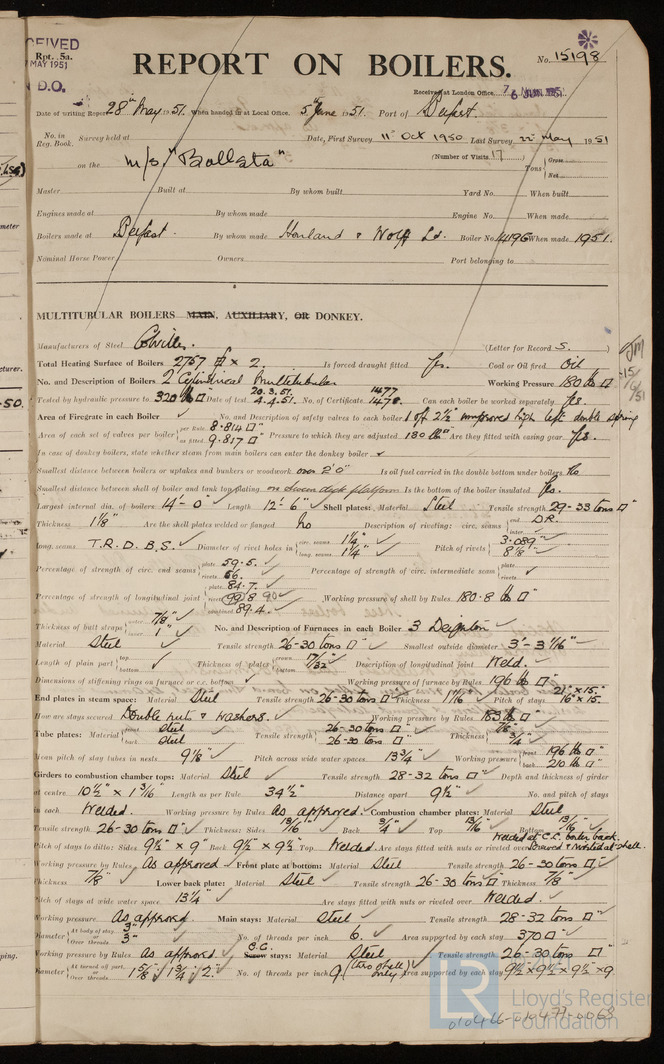 CEIVED
Rpt. 5a.
MAY 1951
D.O.
REPORT ON BOILERS.
No. 15198
Received at London Office
Date of writing Report 28th May 1951. When handed in at Local Office 5th June 1951. Port of Belfast.
No. in Reg. Book. Survey held at Date, First Survey 11th Oct 1950 Last Survey 22nd May 1951
(Number of Visits 17)
on the m/s "Ballsta" Tons Gross Net
Master Built at By whom built Yard No. When built
Engines made at By whom made Engine No. When made
Boilers made at Belfast. By whom made Harland & Wolff Ld. Boiler No. When made 1951.
Nominal Horse Power Owners Port belonging to
MULTITUBULAR BOILERS MAIN, AUXILIARY, OR DONKEY.
Manufacturers of Steel Colvilles. (Letter for Record S.
Total Heating Surface of Boilers 2767 × 2. Is forced draught fitted Yes. Coal or Oil fired Oil
No. and Description of Boilers 2 Cylindrical Multitubular Working Pressure 180 lb □"
Tested by hydraulic pressure to 320 lb □" Date of test 20.3.51. 4.4.51. No. of Certificate 1477 1478. Can each boiler be worked separately Yes.
Area of Firegrate in each Boiler ✓ No. and Description of safety valves to each boiler 1 off 2½" improved high lift double spring
Area of each set of valves per boiler per Rule 8.814 □" as fitted 9.817 □" Pressure to which they are adjusted 180 lb □" Are they fitted with easing gear Yes.
In case of donkey boilers, state whether steam from main boilers can enter the donkey boiler ✓
Smallest distance between boilers or uptakes and bunkers or woodwork over 2'0" Is oil fuel carried in the double bottom under boilers No
Smallest distance between shell of boiler and tank top plating on deck platform Is the bottom of the boiler insulated Yes.
Largest internal dia. of boilers 14'-0" Length 12'-6" Shell plates: Material Steel Tensile strength 29-33 tons □"
Thickness 1⅛" Are the shell plates welded or flanged No Description of riveting: circ. seams end D.R. inter.
long. seams T.R.D.B.S. Diameter of rivet holes in circ. seams 1¼" long. seams 1¼" Pitch of rivets 3.089" 8⅛"
Percentage of strength of circ. end seams plate 59.5. rivets 56. Percentage of strength of circ. intermediate seam plate rivets
Percentage of strength of longitudinal joint plate 84.7. rivets combined 89.4. Working pressure of shell by Rules 180.8 lb □"
Thickness of butt straps outer 7/8" inner 1" No. and Description of Furnaces in each Boiler 3 Deighton
Material Steel Tensile strength 26-30 tons □" Smallest outside diameter 3'-3 1/16"
Length of plain part top bottom Thickness of plates crown bottom 17/32" Description of longitudinal joint Weld.
Dimensions of stiffening rings on furnace or c.c. bottom ✓ Working pressure of furnace by Rules 196 lb □"
End plates in steam space: Material Steel Tensile strength 26-30 tons □" Thickness 1 1/16" Pitch of stays 21" × 15" 16" × 15"
How are stays secured Double nuts & washers. Working pressure by Rules 183 lb □"
Tube plates: Material front Steel back Steel Tensile strength 26-30 tons □" 26-30 tons □" Thickness 7/8" 3/4"
Mean pitch of stay tubes in nests 9⅛" Pitch across wide water spaces 13¾" Working pressure front 196 lb □" back 210 lb □"
Girders to combustion chamber tops: Material Steel Tensile strength 28-32 tons □" Depth and thickness of girder
at centre 10½" × 1 3/16" Length as per Rule 34½" Distance apart 9½" No. and pitch of stays
in each Welded. Working pressure by Rules As approved. Combustion chamber plates: Material Steel
Tensile strength 26-30 tons □" Thickness: Sides 13/16" Back 3/4" Top 13/16" Bottom 13/16"
Pitch of stays to ditto: Sides 9½" × 9" Back 9½" × 9½" Top Welded. Are stays fitted with nuts or riveted over Welded at C.C. boiler back. Screwed & riveted at shell.
Working pressure by Rules As approved Front plate at bottom: Material Steel Tensile strength 26-30 tons □"
Thickness 7/8" Lower back plate: Material Steel Tensile strength 26-30 tons □" Thickness 7/8"
Pitch of stays at wide water space 13¼" Are stays fitted with nuts or riveted over Welded.
Working pressure As approved Main stays: Material Steel Tensile strength 28-32 tons □"
Diameter At body of stay 3" Over threads 3" No. of threads per inch 6. Area supported by each stay 370 □"
Working pressure by Rules As approved C.C. Screw stays: Material Steel Tensile strength 26-30 tons □"
Diameter At turned off part or Over threads 1⅝" 1¾" 2" No. of threads per inch 9 (two shell only) Area supported by each stay 9½" × 9½" 9½" × 9
Lloyd's Register Foundation
010466-010477-0068